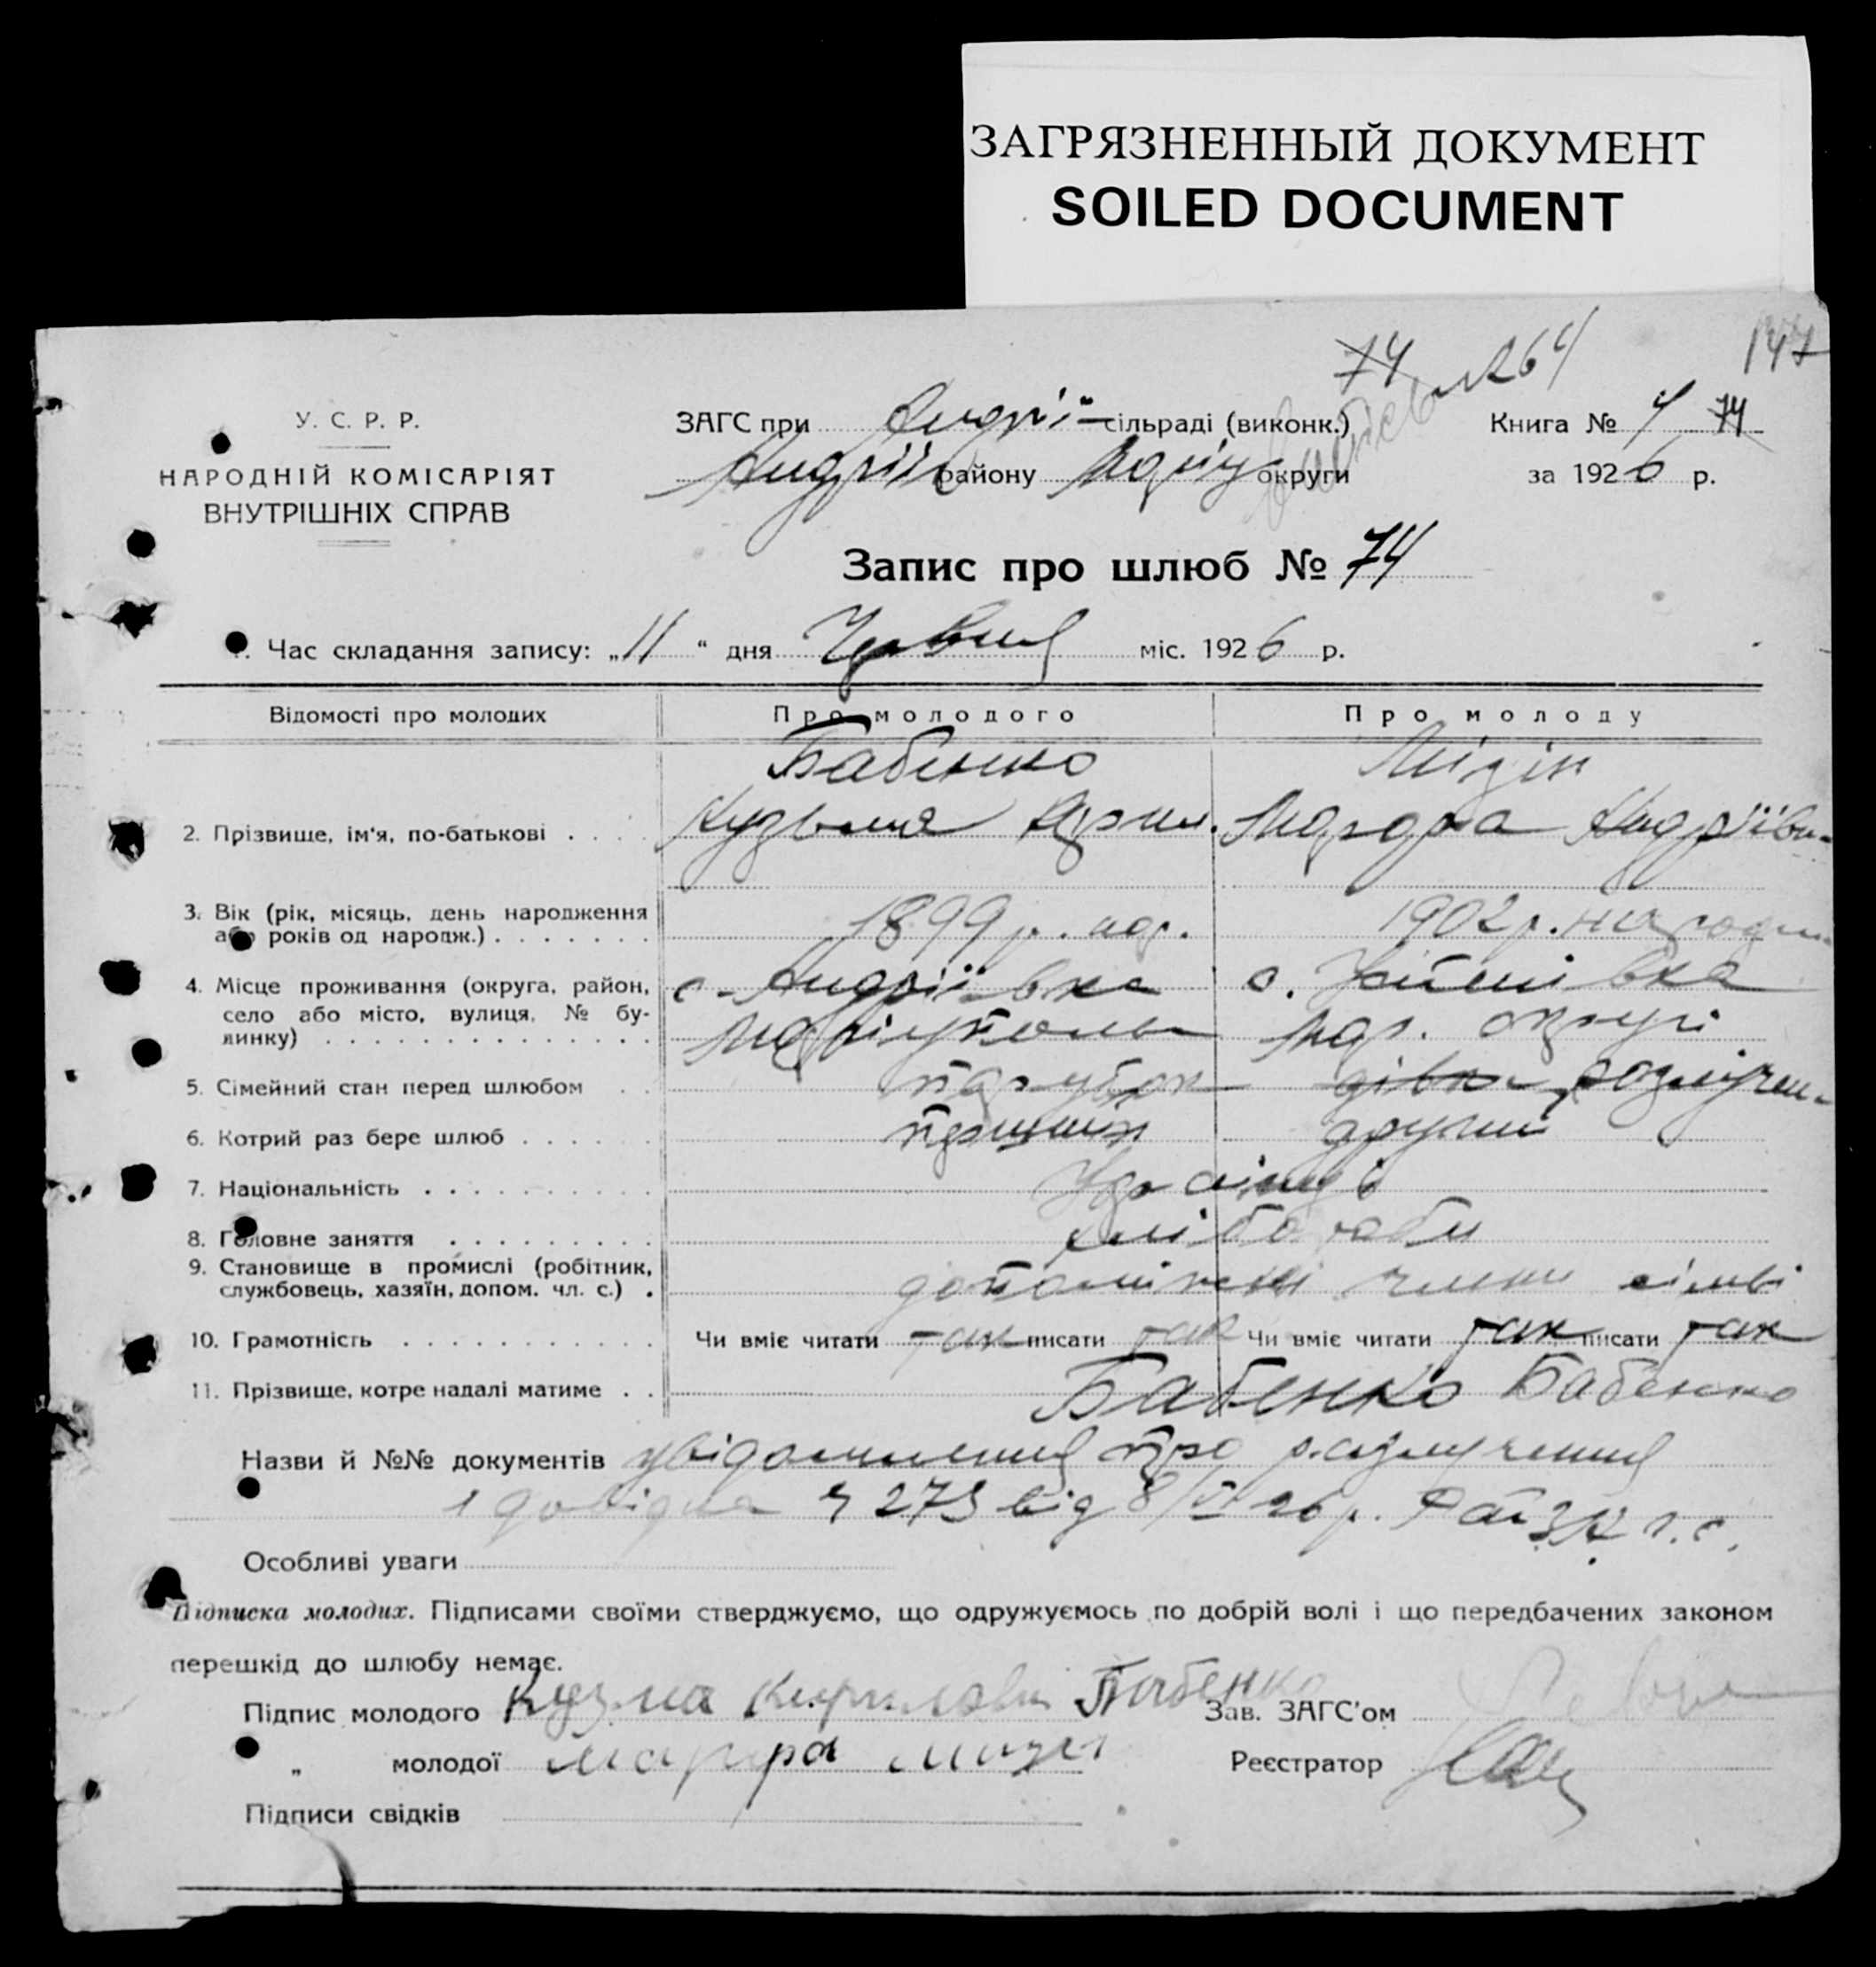 ЗАГРЯЗНЕННЫЙ ДОКУМЕНТ
SOILED DOCUMENT
74 № 264 147
У. С. Р. Р.
НАРОДНІЙ КОМІСАРІЯТ
ВНУТРІШНІХ СПРАВ
ЗАГС при Андрії сільраді (виконк.)
Андріїв району Маріуп округи
Книга № 4 74
за 1926 р.
Запис про шлюб № 74
1. Час складання запису: „11“ дня Червня міс. 1926 р.
Відомості про молодих Про молодого Про молоду
Бабенко Мізін
2. Прізвище, ім'я, по-батькові Кузьма Кирил. Марфа Андріївн
3. Вік (рік, місяць, день народження
або років од народж.) 1899 р. нар. 1902 р. народж
4. Місце проживання (округа, район,
село або місто, вулиця, № бу-
динку)
с. Андріївка с.
Маріуполь Мар. округи
5. Сімейний стан перед шлюбом парубок дівка розлучен
6. Котрий раз бере шлюб перший другий
7. Національність Українці
8. Головне заняття хлібороби
9. Становище в промислі (робітник,
службовець, хазяїн, допом. чл. с.) допоміжні члени сімї
10. Грамотність Чи вміє читати так писати так Чи вміє читати так писати так
11. Прізвище, котре надалі матиме Бабенко Бабенко
Назви й №№ документів увідомлення про розлучення
і довідка 273 від 8/VI 26 р.
Особливі уваги
Підписка молодих. Підписами своїми стверджуємо, що одружуємось по добрій волі і що передбачених законом
перешкід до шлюбу немає.
Підпис молодого Кузма Кирилови Бабенко Зав. ЗАГС'ом
„ молодої Марфа Мізін Реєстратор
Підписи свідків